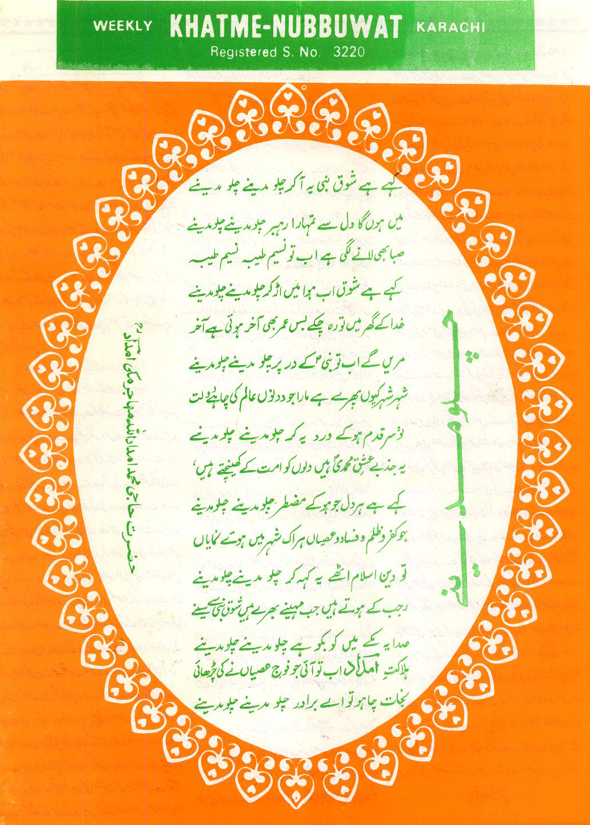 WEEKLY KHATME-NUBBUWAT KARACHI
Registered S. No. 3220
چلو مدینے
کہے ہے شوق نبی یہ آکر چلو مدینے چلو مدینے
میں ہوں گا دل سے تمہارا رہبر چلو مدینے چلو مدینے
صبا بھی لانے لگی ہے اب تو نسیم طیبہ نسیم طیبہ
کہے ہے شوق اب ہوا میں اڑ کر چلو مدینے چلو مدینے
خدا کے گھر میں تو رہ چکے بس عمر بھی آخر ہوئی ہے آخر
مریں گے اب تو نبی کے در پر چلو مدینے چلو مدینے
شہر شہر کیوں پھرے ہے مارا جو دونوں عالم کی چاہئے دولت
تو سر قدم ہو کے ورد یہ کر چلو مدینے چلو مدینے
یہ جذبِ عشق محمدی ہیں دلوں کو امت کے کھینچتے ہیں
کہے ہے ہر دل جو ہو کے مضطر چلو مدینے چلو مدینے
جو کفر و ظلم و فساد و عصیاں ہر اک شہر میں ہوئے نمایاں
تو دین اسلام اٹھے یہ کہہ کر چلو مدینے چلو مدینے
رجب کے ہوتے ہیں جب مہینے بھرے ہیں شوق نبی سے سینے
صدا یہ مکے میں کو بکو ہے چلو مدینے چلو مدینے
ہلاکت امداد اب تو آئی جو فوج عصیاں نے کی چڑھائی
نجات چاہو تو اے برادر چلو مدینے چلو مدینے
حضرت حاجی محمد امداد اللہ مہاجر مکی امداد